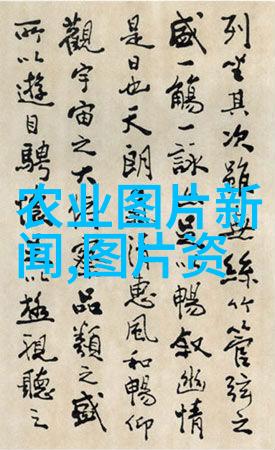 列坐其次雖無絲竹管弦之
盛一觴一詠亦足以暢敘幽情
是日也天朗氣清惠風和暢仰
觀宇宙之大俯察品類之盛
所以遊目騁懷足以極視聽之
农业图片新
闻,图片资